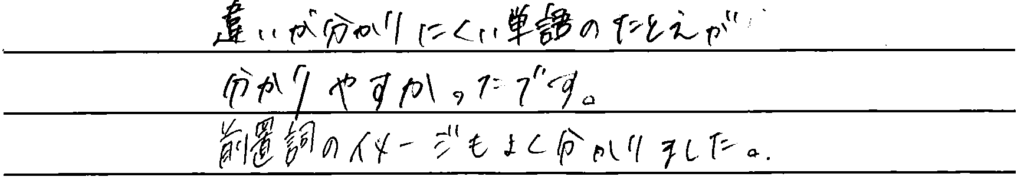 違いが分かりにくい単語のたとえが
分かりやすかったです。
前置詞のイメージもよく分かりました。